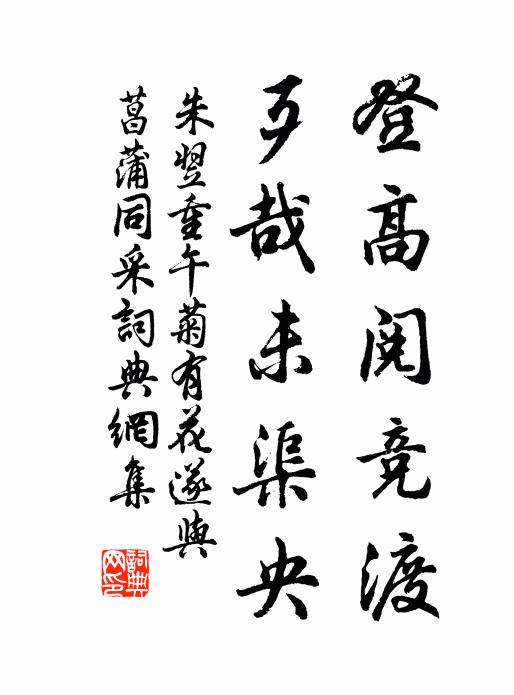 登高閱竞渡
歹哉未渠央
朱翌重午菊有花遂與
菖蒲同采詞典網集
詞典网印